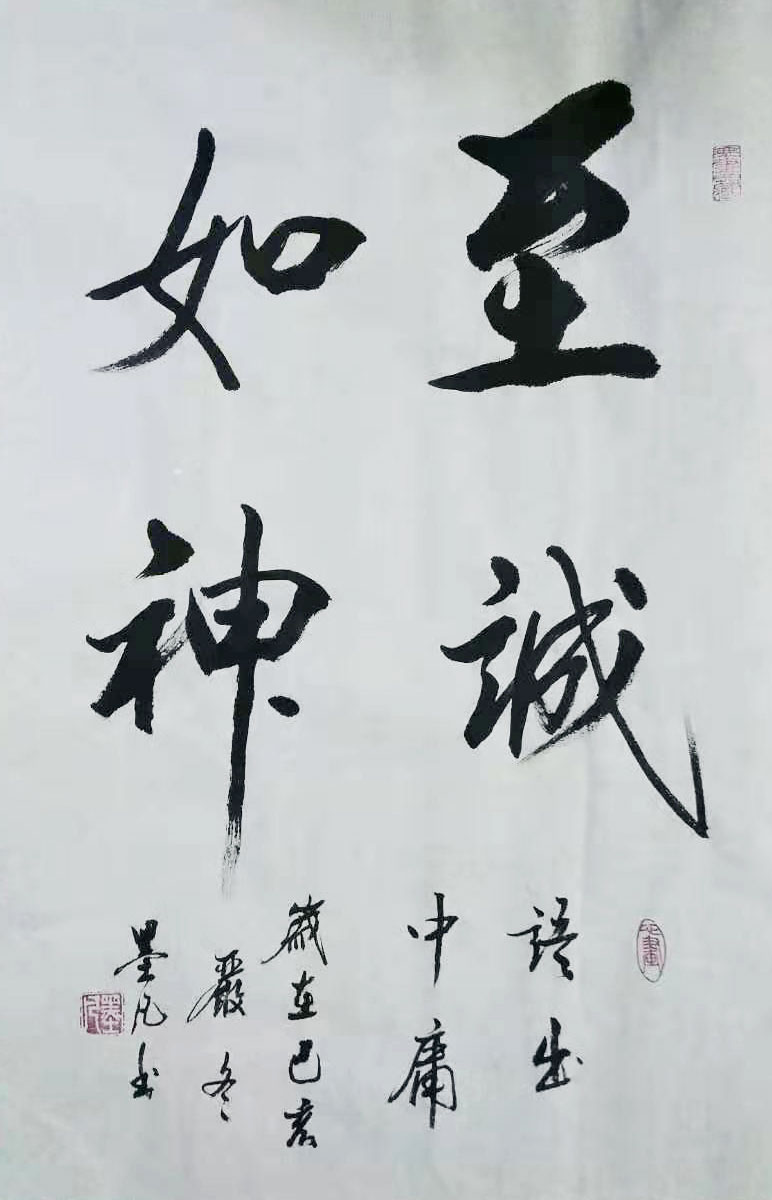 至誠
如神
語出
中庸
歲在己亥
嚴冬
墨凡书
墨凡